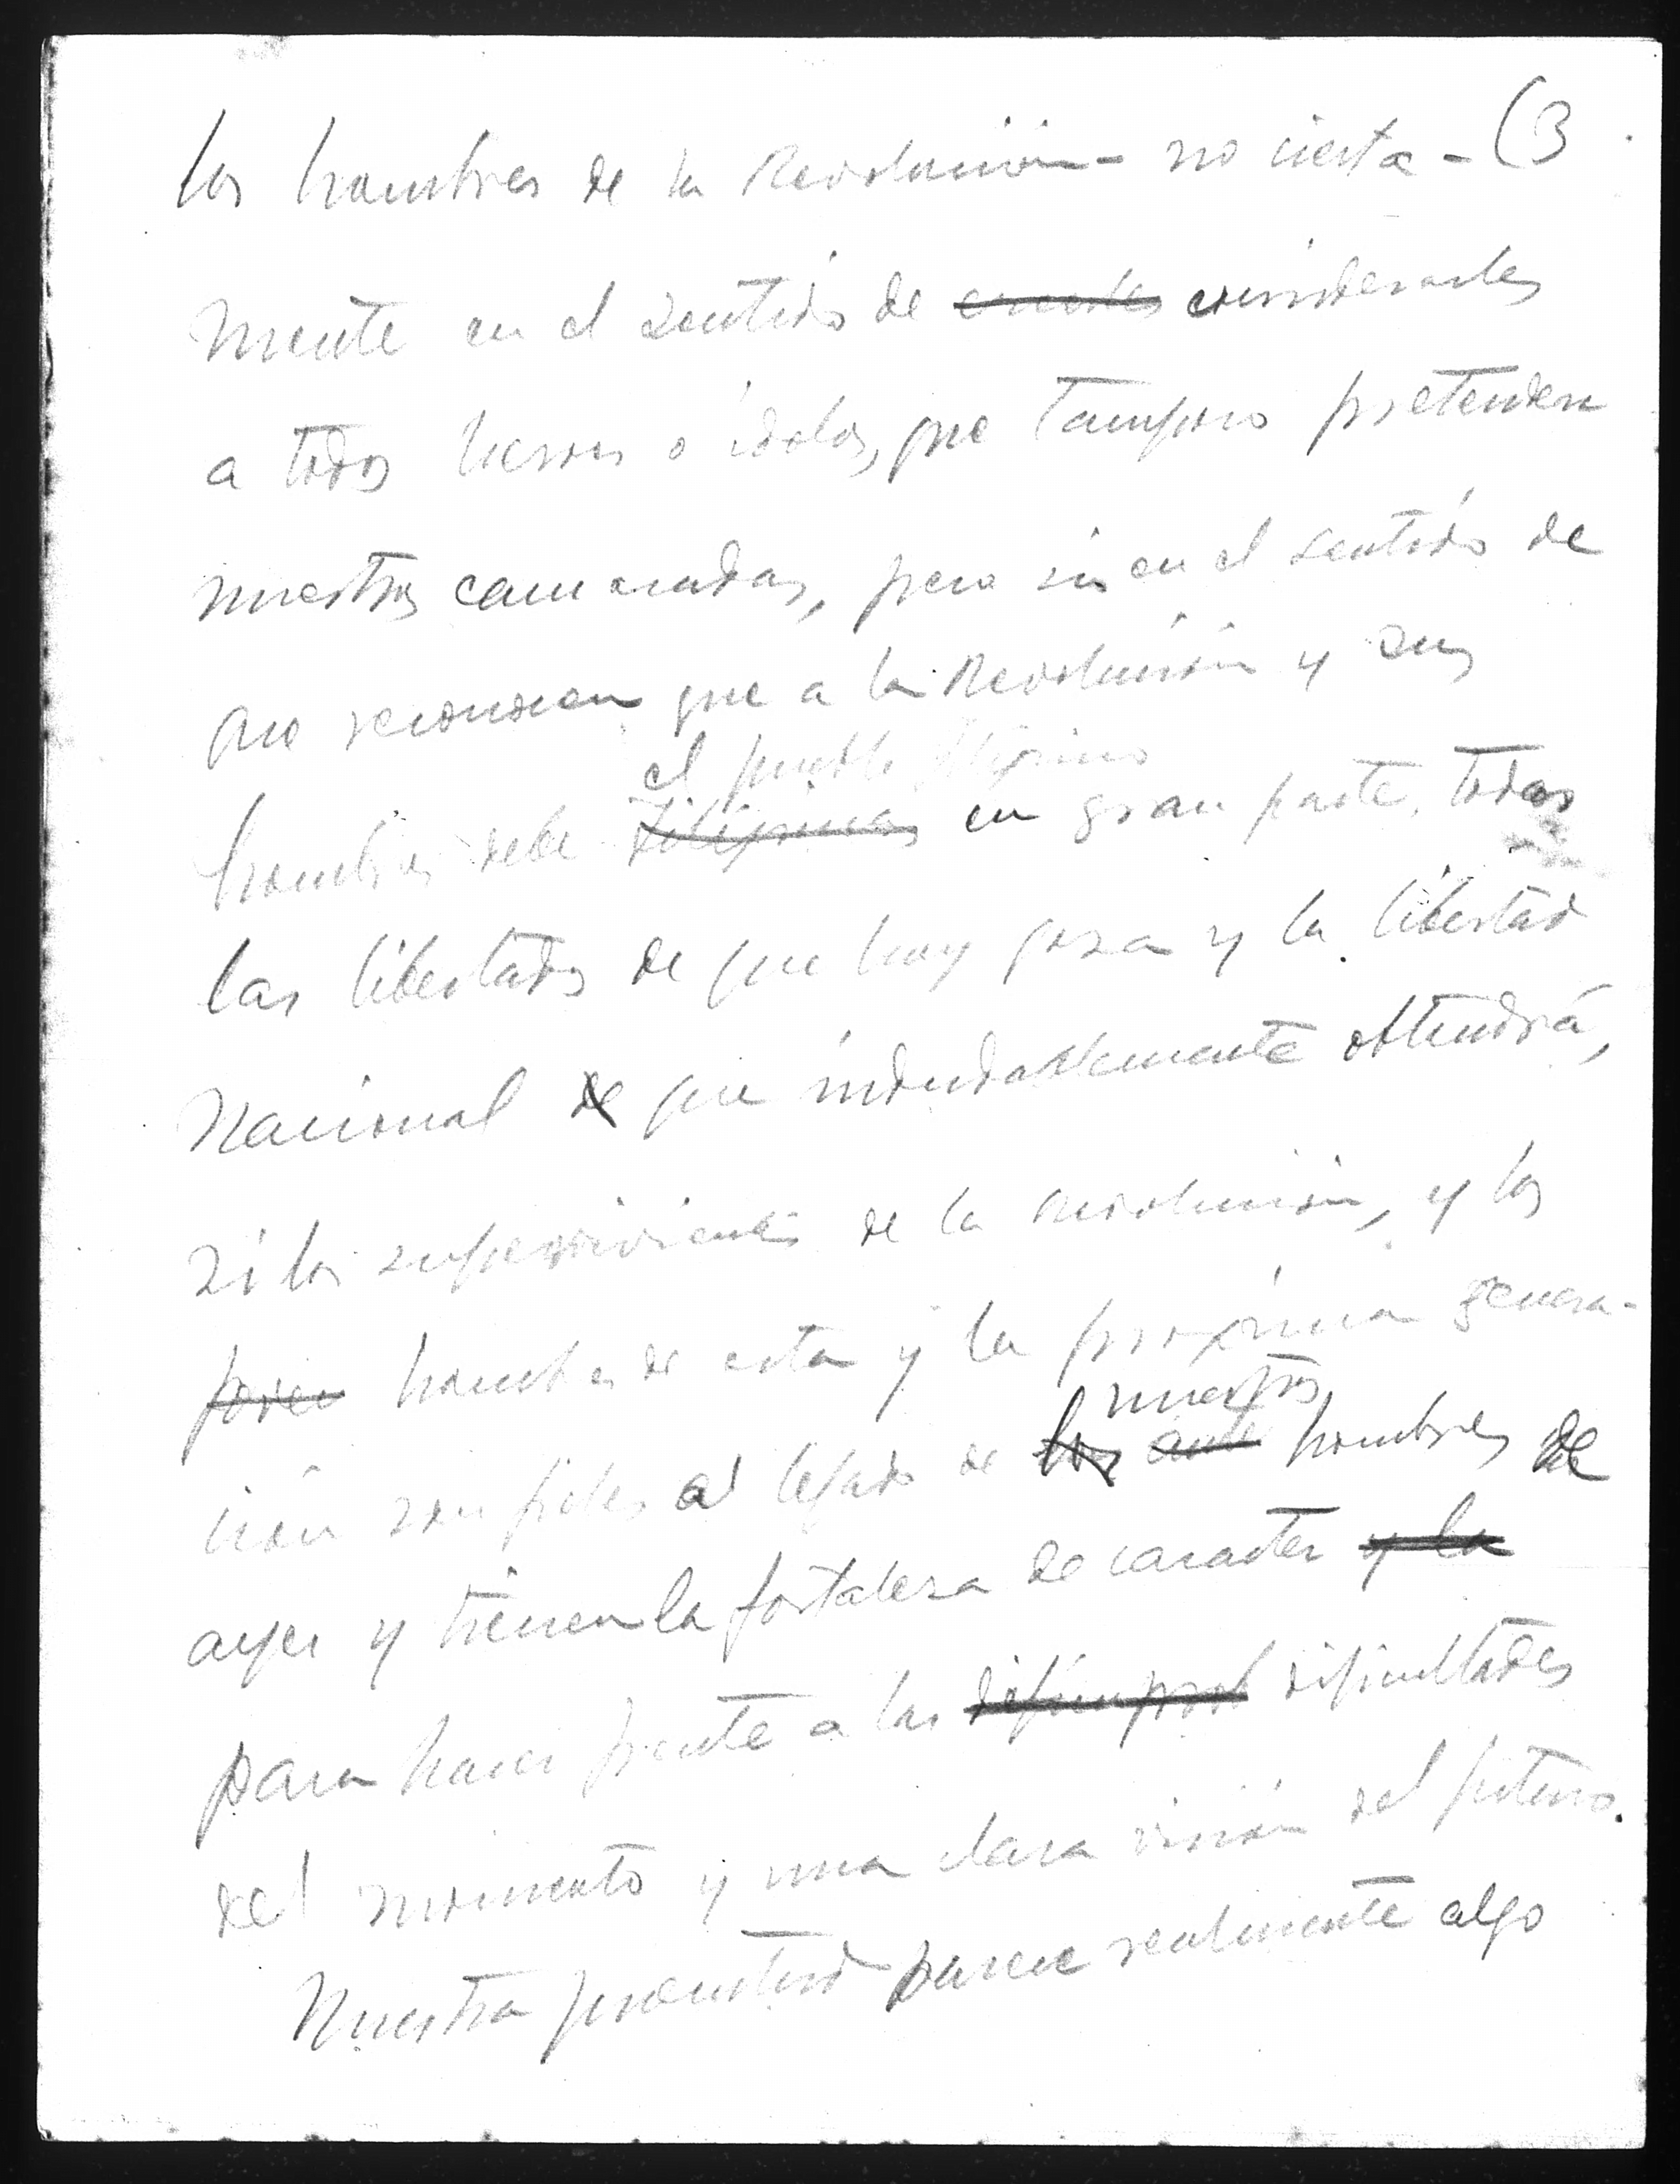 los hombres de la Revolución - no cierta - (3
mente en el sentido de considerarles
a todos heroes o idolos, que tampoco pretenden
nuestros camaradas, pero si en el sentido de
no reconocen que a la Revolución y sus
el pueblo filipino
hombres debe Filipinas en gran parte, todas
las libertades de que hoy goza y la libertad
Nacional de que indudablemente obtendrá,
si los supervivientes de la revolución, y los
joven hombres de esta y la próxima genera-
nuestros
ción son fieles al legado de los ante hombres de
ayer y tienen la fortaleza de caracter y la
para hacer frente a las dificultades
del momento y una clara visión del futuro.
Nuestra juventud parece realmente algo